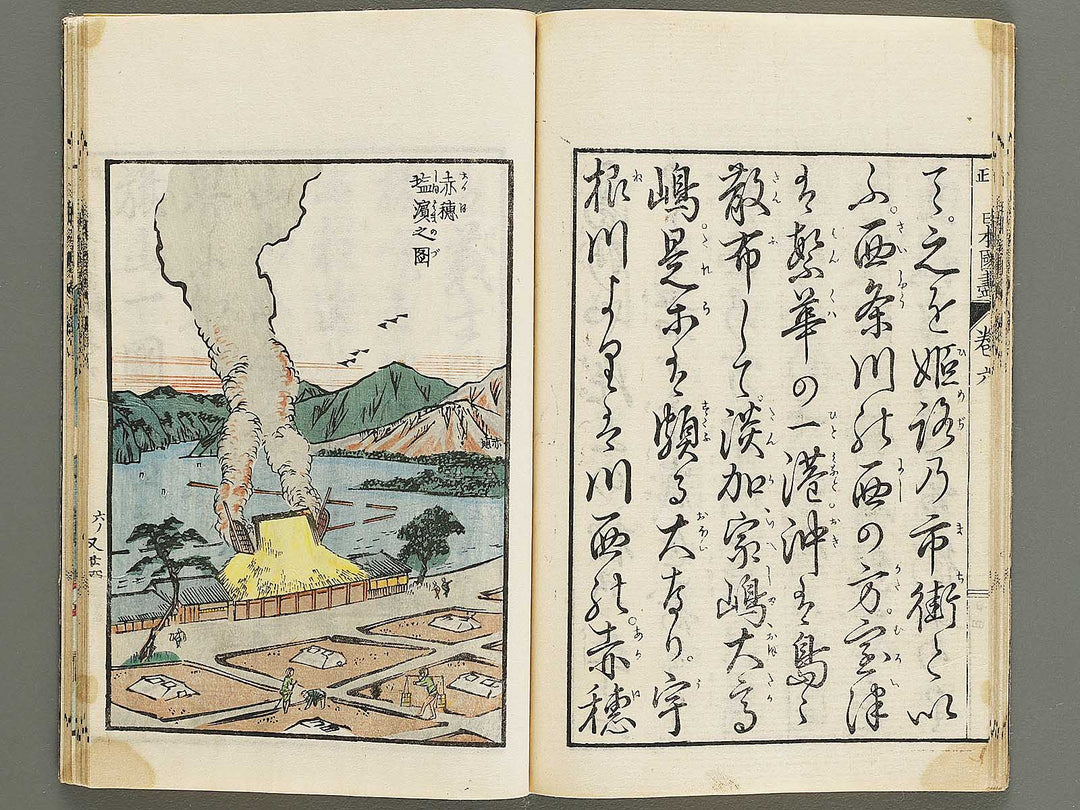 日本國盡
巻六
て。之を姫路乃市街と以
ふ。西条川能西の方。室津
は繁華の一港沖は島々
散布して。淡加家嶋大高
嶋是等は頗る大なり。宇
根川より は川西能。赤穂
赤穂
塩濱之圖
赤穂
六ノ又廿六